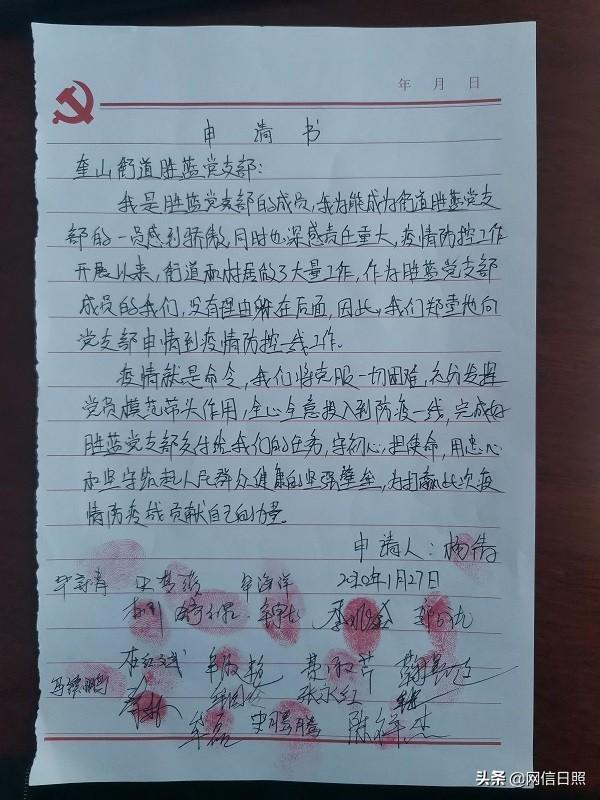 年 月 日
申请书
奎山街道胜蓝党支部:
我是胜蓝党支部的成员,我为能成为街道胜蓝党支
部的一员感到骄傲,同时也深感责任重大,疫情防控工作
开展以来,街道和村居做了大量工作,作为胜蓝党支部
成员的我们,没有理由躲在后面,因此,我们郑重地向
党支部申情到疫情防控一线工作。
疫情就是命令,我们将克服一切困难,充分发挥
党员模范带头作用,全心全意投入到防疫一线,完成好
胜蓝党支部交付给我们的任务,守初心,担使命,用忠心
和坚守筑起人民群众健康的坚强壁垒,为打赢此次疫
情防疫战贡献自己的力量。
申请人:杨伟
2020年1月27日
牟海洋
费淑芹
张永红
牟磊 史腾腾 陈祥杰
头条@网信日照